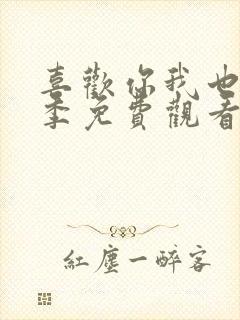 喜歡你我也
季免費觀看
紅塵一醉客